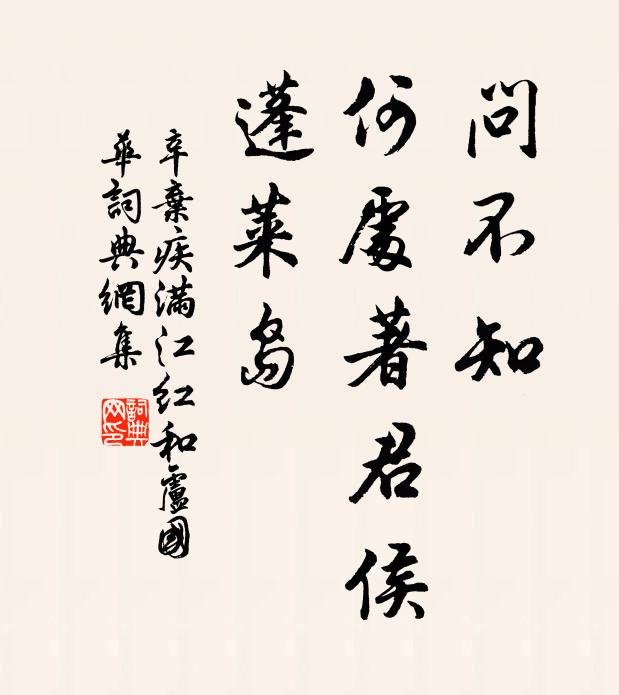 問不知
何處著君侯
蓬萊島
辛棄疾滿江紅和盧國
華詞典網集
詞典
网印